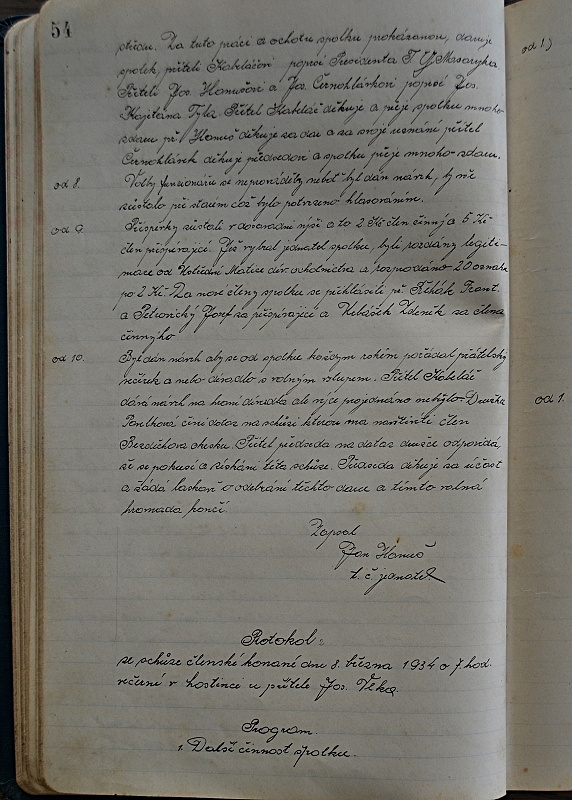 54
středu. Za tuto práci a ochotu spolku prokázanou, daruje
spolek, příteli Kabeláčovi poprsí Presidenta T. G. Masaryka
Příteli Jos. Hamušovi a Jos. Černohlávkovi poprsí Jos.
Kajetána Tyla. Přítel Kabeláč děkuje a přeje spolku mnoho
zdaru př. Hamuš děkuje za dar a za svoje uznání přítel
Černohlávek děkuje předsedovi a spolku přeje mnoho zdaru.
od 8. Volby funkcionářů se neprováděly neboť byl dán návrh, by vše
zůstalo při starém což bylo potvrzeno hlasováním.
od 9. Příspěvky zůstali v dosavadní výši a to 2 Kč člen činný a 5 Kč
člen přispívající. Též vybral jednatel spolku, byli rozdány legiti-
mace od Ústřední Matice div. ochotnictva a rozprodáno 20 odznaků
po 2 Kč. Za nové členy spolku se přihlásili př. Řehák Frant.
a Petrovický Josef za přispívající a Zdeněk za člena
činného
od 10. Byl dán návrh aby se od spolku každým rokem pořádal přátelský
večírek a nebo divadlo s volným vstupem. Přítel Kabeláč
dává návrh na divadla ale více projednáno nebylo. Družka
Pavlková činí dotaz na schůzi kterou má navštíviti člen
okrsku. Přítel předseda na dotaz družce odpovídá,
že se pokusí o získání této schůze. Předseda děkuje za účast
a žádá laskavě o odebrání těchto darů a tímto valná
hromada končí.
Zapsal
Jan Hamuš
t. č. jednatel
Protokol:
ze schůze členské konané dne 8. března 1934 o 7 hod.
večerní v hostinci u přítele Jos. Vlka.
Program.
1. Další činnost spolku.
od 1)
od 1.